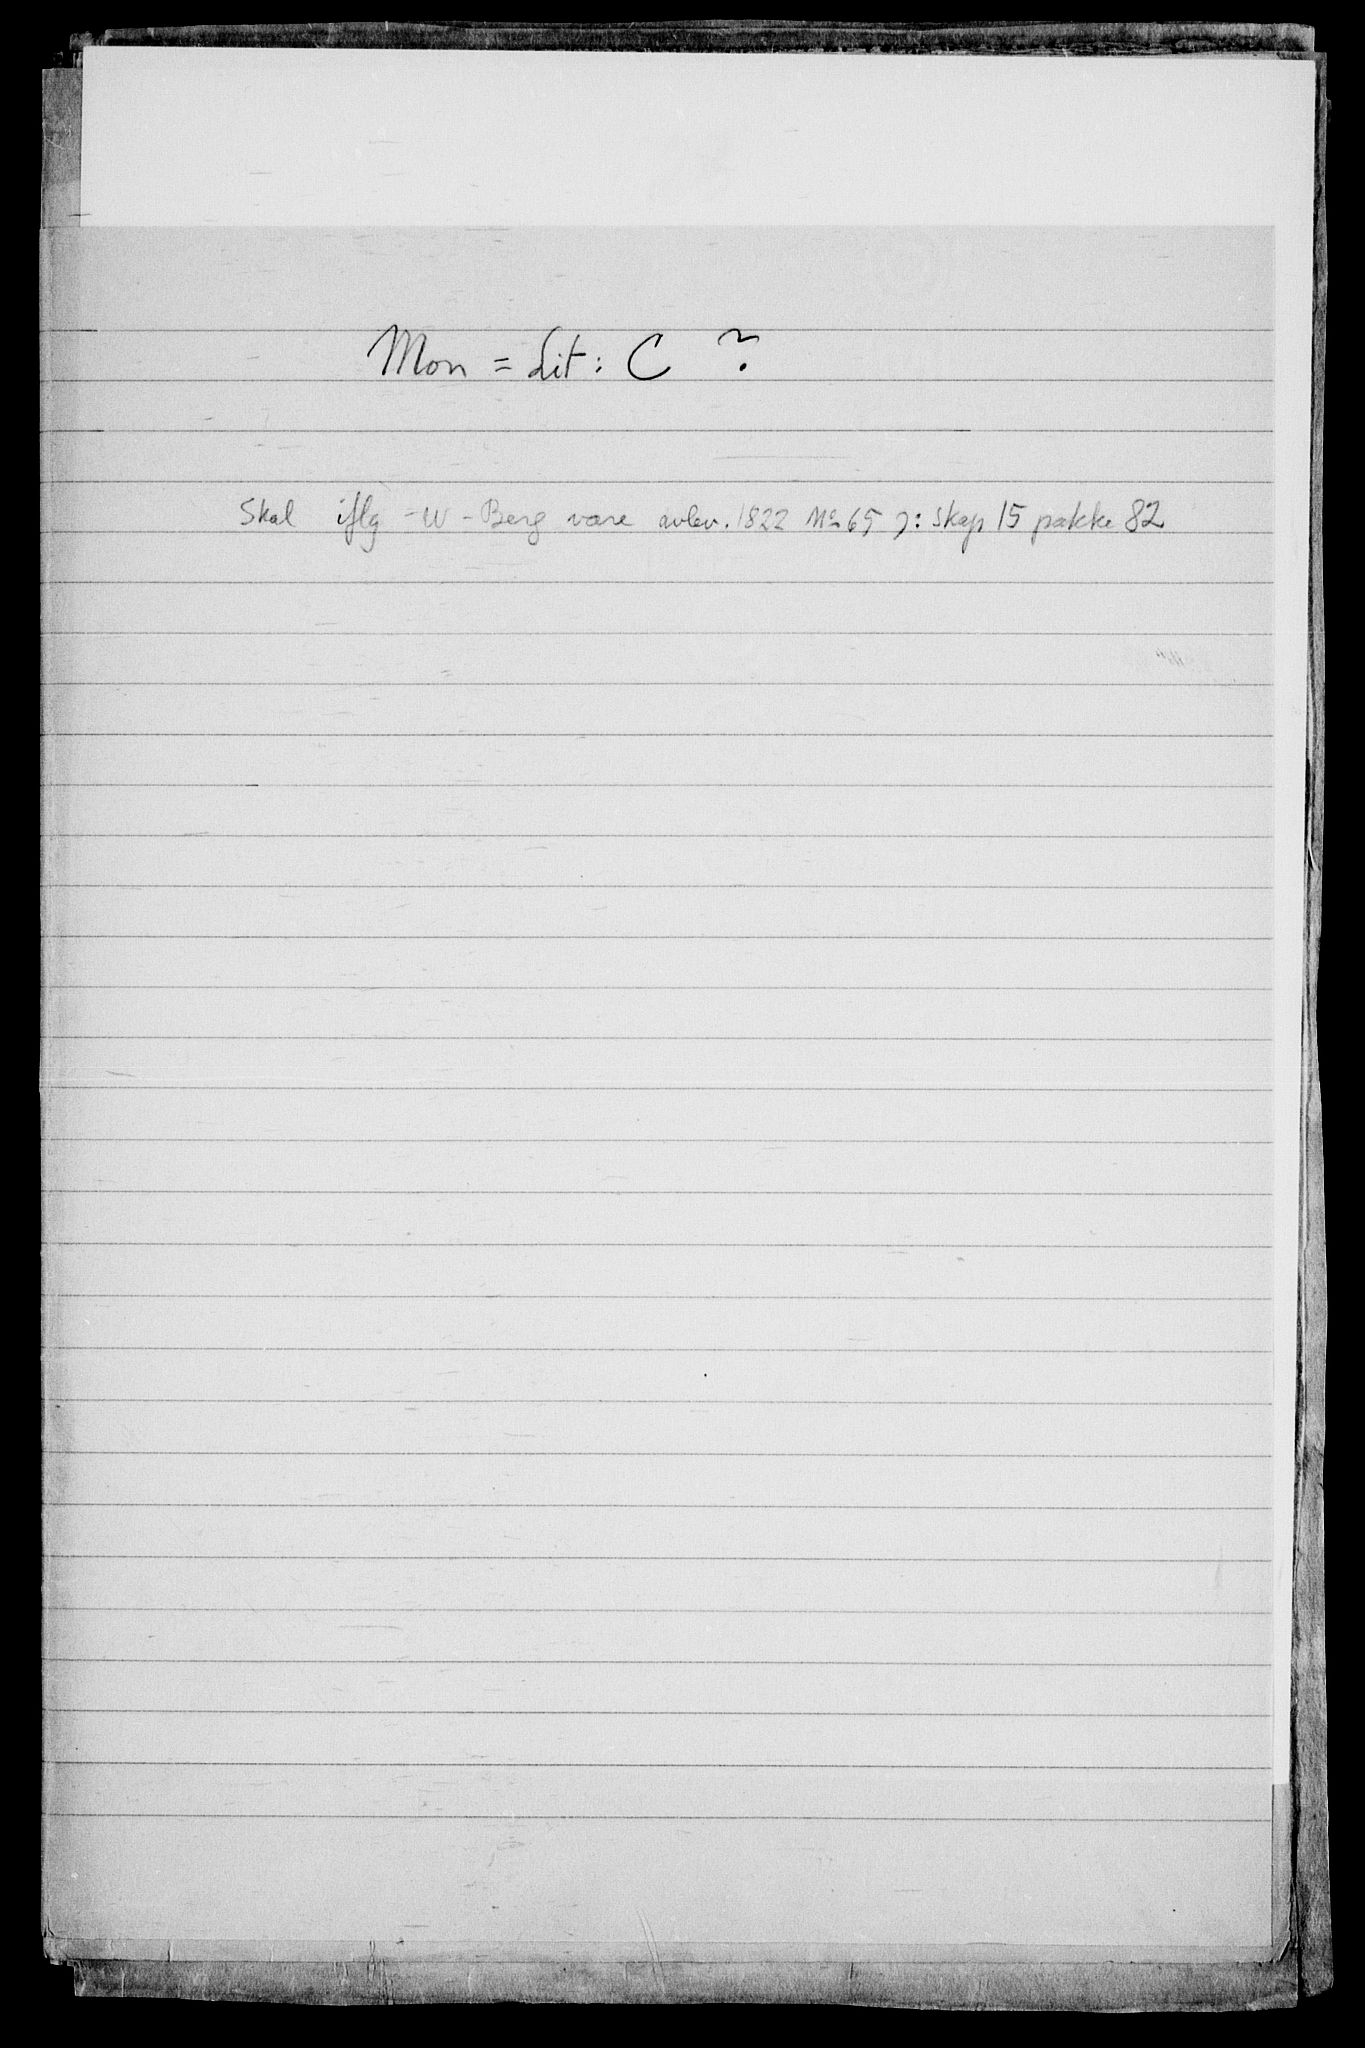 Mon = Lit: C ?
Skal iflg -W- Berg være avlev. 1822 No 65 ɔ: skap 15 pakke 82